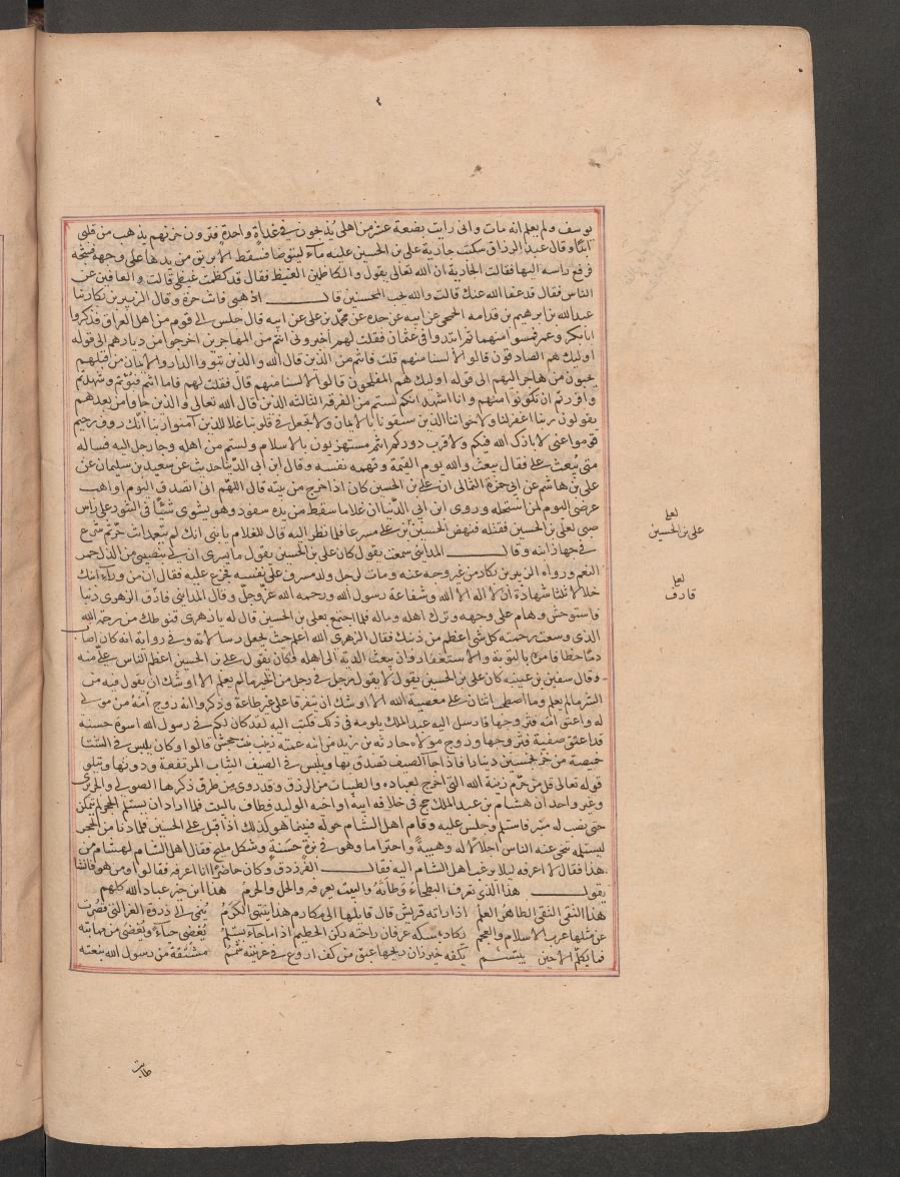 يوسف ولم يعلم انه مات واني رايت بضعة عشر من اهلي يُذبحون في غداةٍ واحدةٍ فترون حزنهم يذهب من قلبي
ابدًا وقال عبد الرزاق سكبت جارية علي بن الحسين عليه ماءً ليتوضا فسقط الابريق من يدها على وجهه فشجّه
فرفع راسه اليها فقالت الجارية ان الله تعالى يقول والكاظمين الغيظ فقال قد كظمت غيظي قالت والعافين عن
الناس فقال قد عفا الله عنك قالت والله يحب المحسنين قال اذهبي فانت حرة وقال الزبير بن بكار ثنا
عبدالله بن ابرهيم بن قدامه الجمحي عن ابيه عن جده عن محمد بن علي عن ابيه قال جلس الي قوم من اهل العراق فذكروا
ابابكر وعمر فمسوا منهما ثم ابتدوا في عثمان فقلت لهم اخبروني انتم من المهاجرين اخرجوا من ديارهم الى قوله
اوليك هم الصادقون قالوا لا لسنا منهم قلت فانتم من الذين قال الله والذين تبووا الدار والايمان من قبلهم
يحبون من هاجر اليهم الى قوله اوليك هم المفلحون قالوا لا لسنا منهم قال فقلت لهم فاما انتم فتبوتم وشهدتم
واقررتم ان تكونوا منهم وانا اشهد انكم لستم من الفرقه الثالثه الذين قال الله تعالى والذين جاوا من بعدهم
يقولون ربنا اغفر لنا ولاخواننا الذين سبقونا بالايمان ولا تجعل في قلوبنا غلا للذين آمنوا ربنا انك روف رحيم
قوموا عني لا بارك الله فيكم ولا قرب دوركم انتم مستهزيون بالاسلام ولستم من اهله وجا رجل اليه فساله
متى يُبعث علي فقال يبعث والله يوم القيمة وتهمه نفسه وقال ابن ابي الدنيا حديث عن سعيد بن سليمان عن
علي بن هاشم عن ابي حمزة الثمالي ان علي بن الحسين كان اذا خرج من بيته قال اللهم اني اتصدق اليوم او اهب
عرضي اليوم لمن استحله وروى ابن ابي الدنيا ان غلاما سقط من يده سفود وهو يشوي شيًا في التنور على راس
صبي لعلي بن الحسين فقتله فنهض الحسين بن علي مسرعا فلما نظر اليه قال للغلام يا بني انك لم تتعمد انت حر ثم شرع
في جهاز ابنه وقال المدايني سمعت يقول كان علي بن الحسين يقول ما يسرني ان لي بنصيبي من الذل حمر
النعم ورواه الزبير بن بكار من غير وجه عنه ومات لرجل ولد مسرف على نفسه فجزع عليه فقال ان من وراء ابنك
خلالا ثلثا شهادة ان لا اله الا الله وشفاعة رسول الله ورحمه الله عز وجل وقال المدايني فاذق الزهري ذنبا
فاستوحش وهام على وجهه وترك اهله وماله فلما اجتمع بعلي بن الحسين قال له يا زهري قنوطك من رحمة الله
الذي وسعت رحمته كل شي اعظم من ذنبك فقال الزهري الله اعلم حيث يجعل رسالاته وفي رواية انه كان اصاب
دمًا خطا فامره بالتوبة والاستغفار وان يبعث الدية الى اهله فكان يقول علي بن الحسين اعظم الناس علي منه
وقال سفين بن عيينه كان علي بن الحسين يقول لا يقول رجل في رجل من الخير ما لم يعلم الا اوشك ان يقول فيه من
الشر ما لم يعلم وما اصطحب اثنان على معصية الله الا اوشك ان يتفرقا على غير طاعة وذكروا انه زوج امّه من مولى
له واعتق امه فتزوجها فارسل اليه عبد الملك يلومه في ذلك فكتب اليه لقد كان لكم في رسول الله اسوة حسنة
قد اعتق صفية فتزوجها وزوج مولاه حارثه بن زيد من ابنه عمته زينب بنت جحش قالوا وكان يلبس في الشتا
خميصة من خز بخمسين دينارا فاذا جا الصيف تصدق بها ويلبس في الصيف الثياب المرتفعة ودونها ويتلوى
قوله تعالى قل من حرّم زينة الله التي اخرج لعباده والطيبات من الرزق وقد روي من طرق ذكرها الصولي والحريري
وغير واحد ان هشام بن عبد الملك حج في خلافة ابيه او اخيه الوليد فطاف بالبيت فلما اراد ان يستلم الحجر لم يتمكن
حتى نصب له منبر فاستلم وجلس عليه وقام اهل الشام حوله فبينما هو كذلك اذ اقبل علي الحسين فلما دنا من الحجر
ليستلمه تنحى عنه الناس اجلالا له وهيبةً واحتراما وهو في بزة حسنةٍ وشكل مليح فقال اهل الشام لهشام من
هذا فقال لا اعرفه ليلا يرغب اهل الشام اليه فقال الفرزدق وكان حاضرًا انا اعرفه فقالوا ومن هو فانشا
يقول هذا الذي تعرف البطحاء وطاتهُ والبيت يعرفه والحل والحرمُ هذا ابن خير عباد الله كلهم
هذا التقي النقي الطاهرُ العلمُ اذا راته قريش قال قايلها الى مكارم هذا ينتهي الكرمُ يُنمى الى ذروة العز التي قصُرت
عن مثلها عرب الاسلام والعجم يكاد يمسكه عرفان راحته ركن الحطيم اذا ما جاء يستلمُ يُغضي حياءً ويُغضى من مهابته
فما يكلّم الا حين يبتسم بكفه خيزران ريحها عبقٌ من كف اروع في عرنينه شممُ مشتقةٌ من رسول الله نبعته
لعله
علي بن الحسين
لعله
قارف
طابت